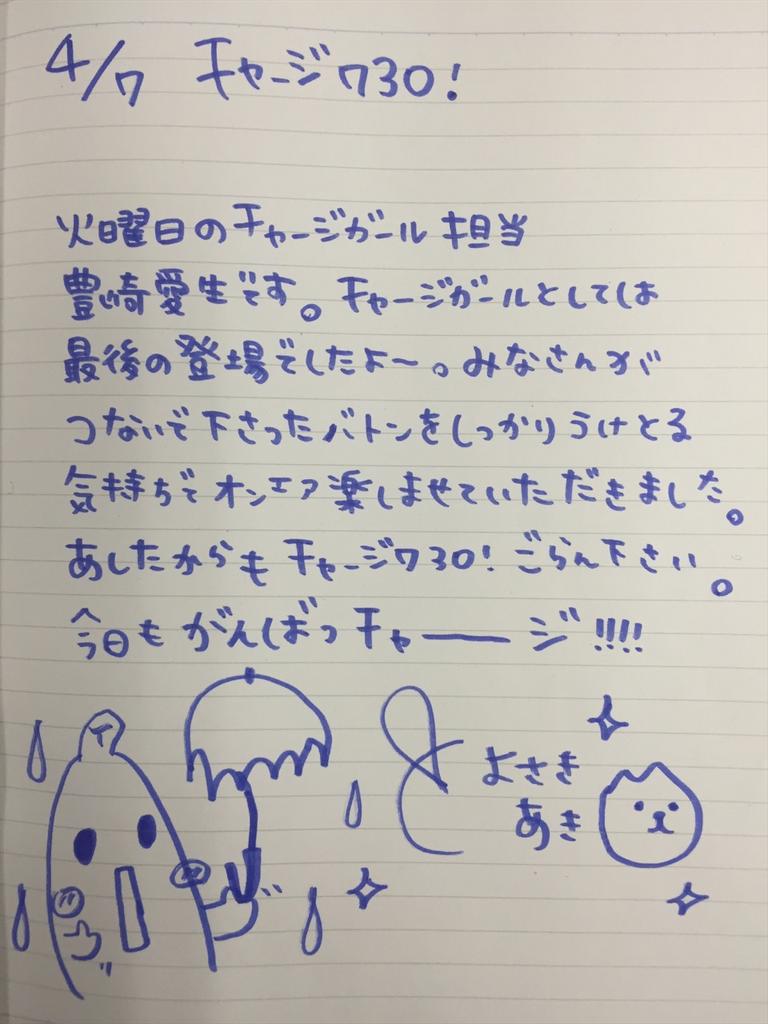 4/7 チャージ730!
火曜日のチャージガール担当
豊崎愛生です。チャージガールとしては
最後の登場でしたよ〜。みなさんが
つないで下さったバトンをしっかりうけとる
気持ちでオンエア楽しませていただきました。
あしたからもチャージ730!ごらん下さい。
今日もがんばっチャーージ!!!!
とよさき
あき